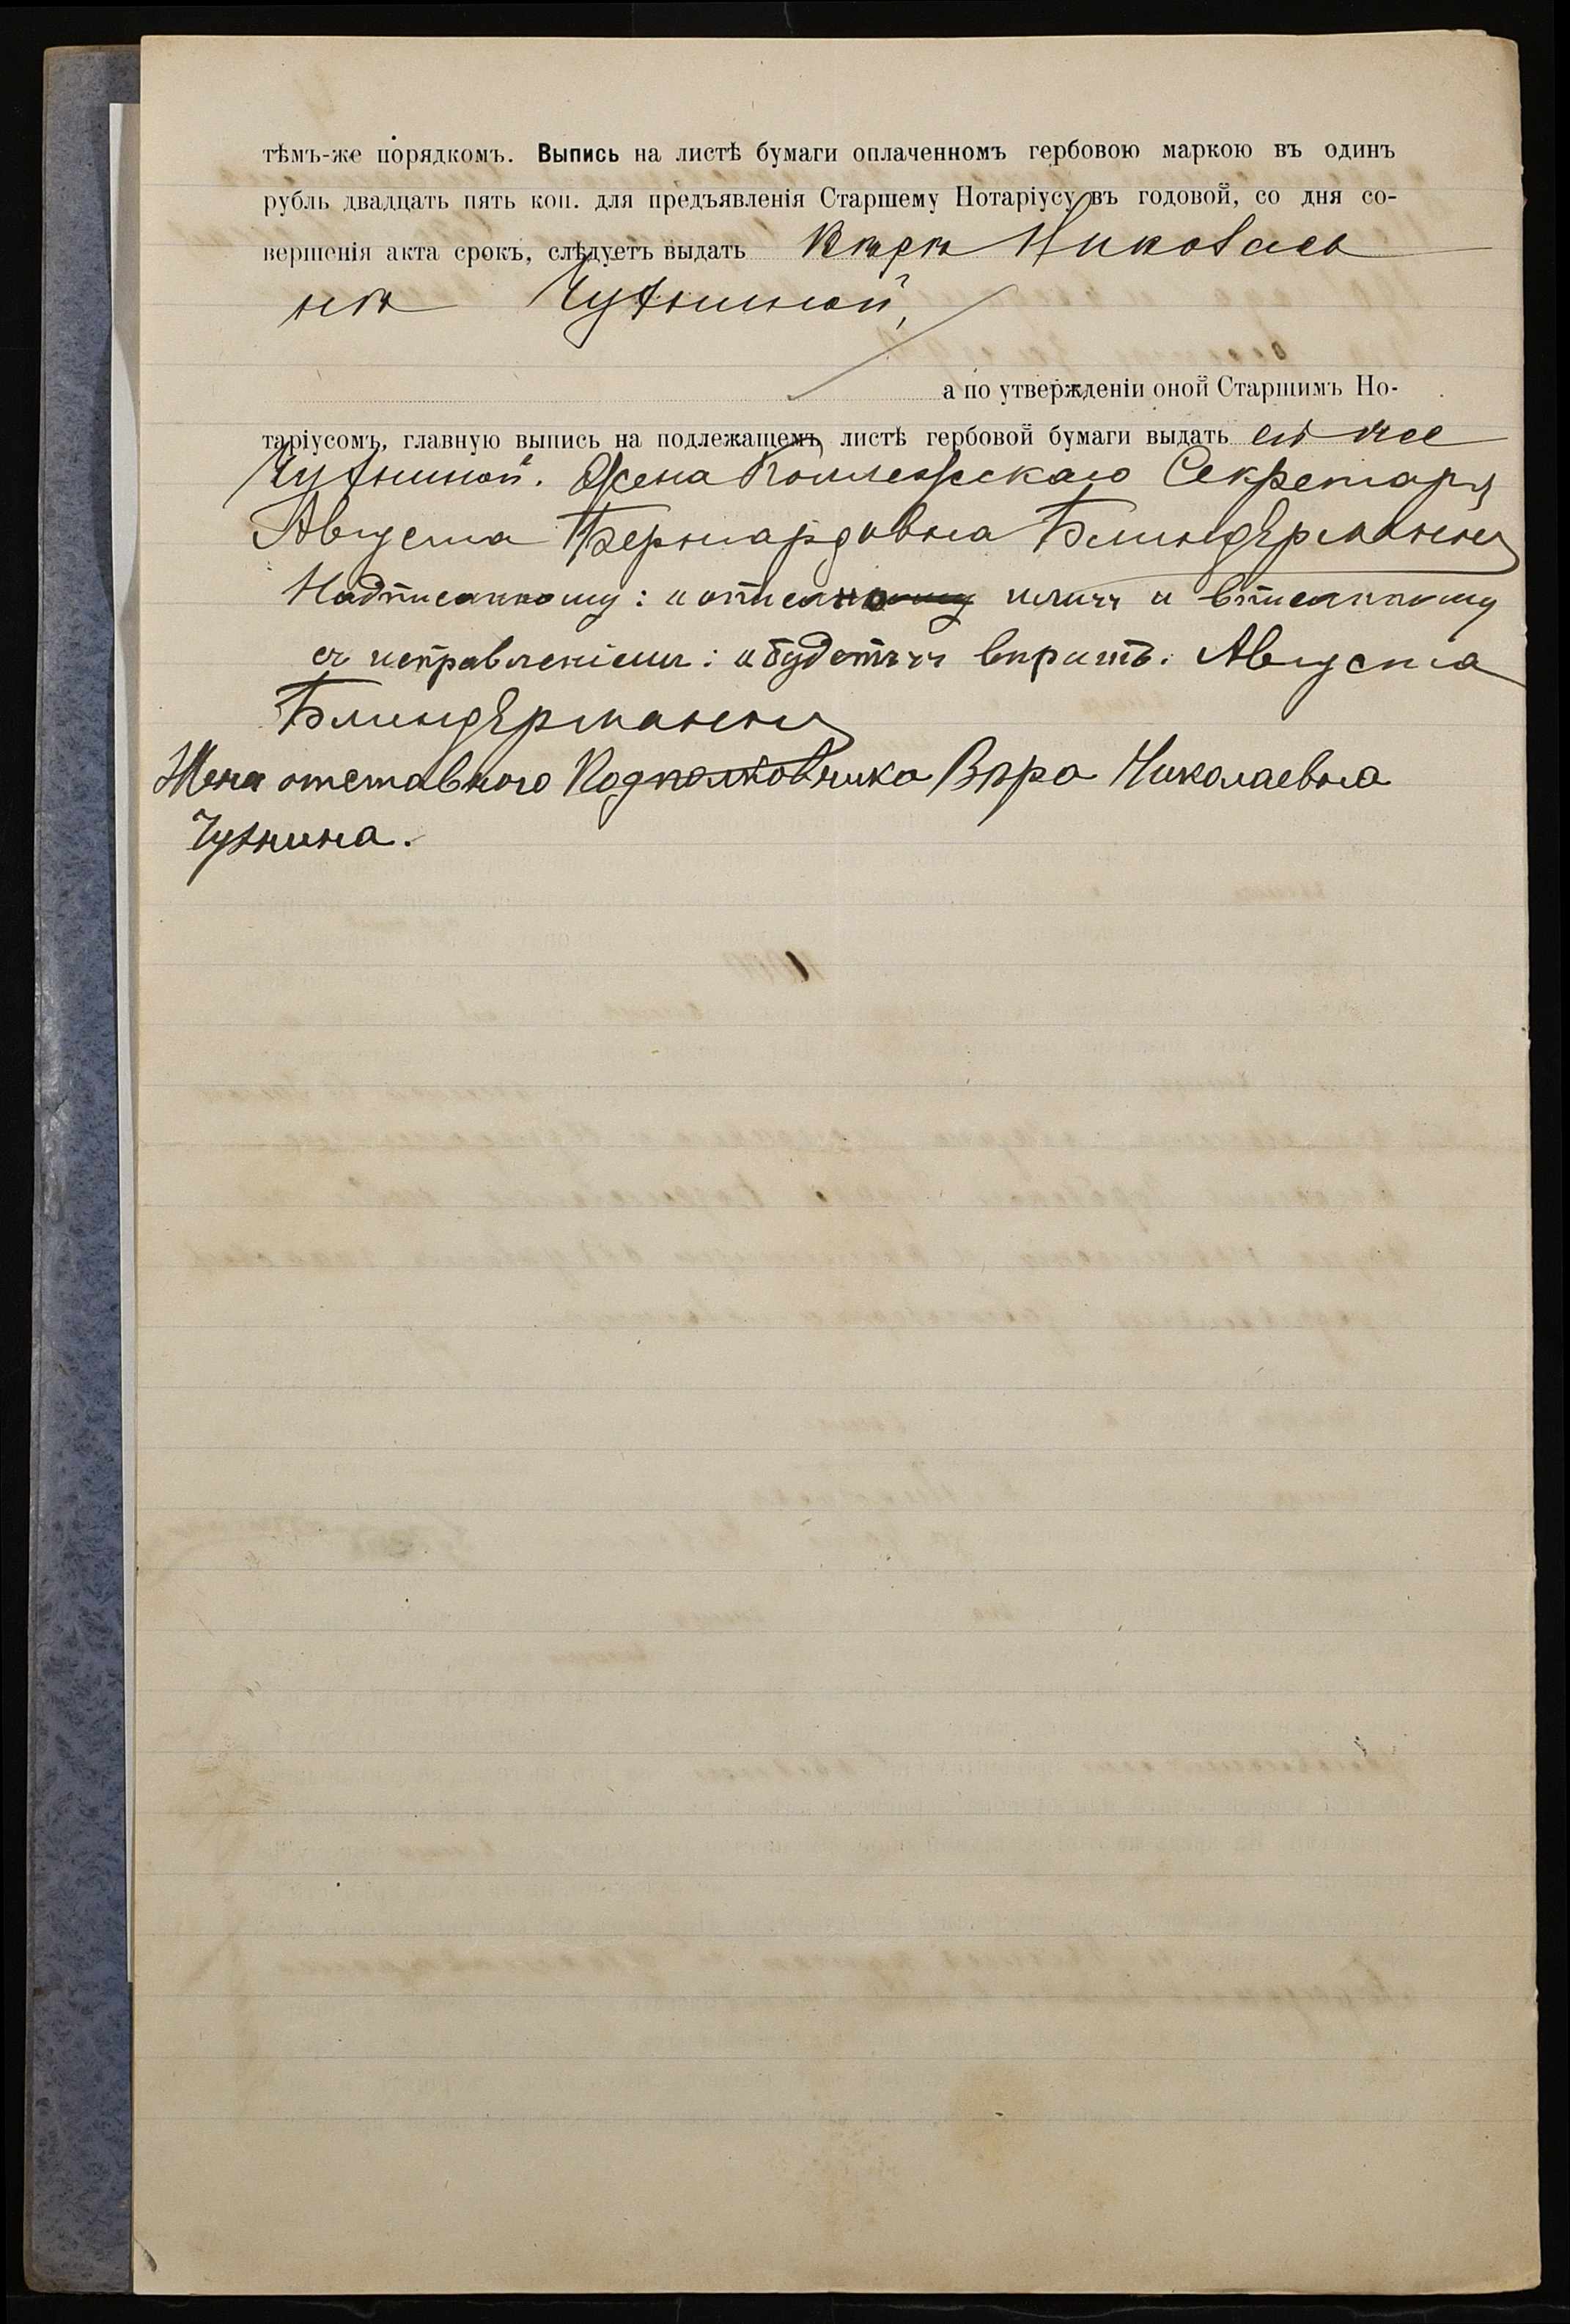 тѣмъ-же порядкомъ. Выпись на листѣ бумаги оплаченномъ гербовою маркою въ одинъ
рубль двадцать пять коп. для предъявленія Старшему Нотаріусу въ годовой, со дня со-
вершенія акта срокъ, слѣдуетъ выдать Вѣрѣ Николаев
нѣ
а по утвержденіи оной Старшимъ Но-
таріусомъ, главную выпись на подлежащемъ листѣ гербовой бумаги выдать ей же
Жена Коллежскаго Секретаря
Августа Бернардовна Блиндерманнъ
Надписанному: и вписанному
съ исправленіемъ: вѣрить. Августа
Блиндерманнъ
Жена отставного Подполковника Вѣра Николаевна